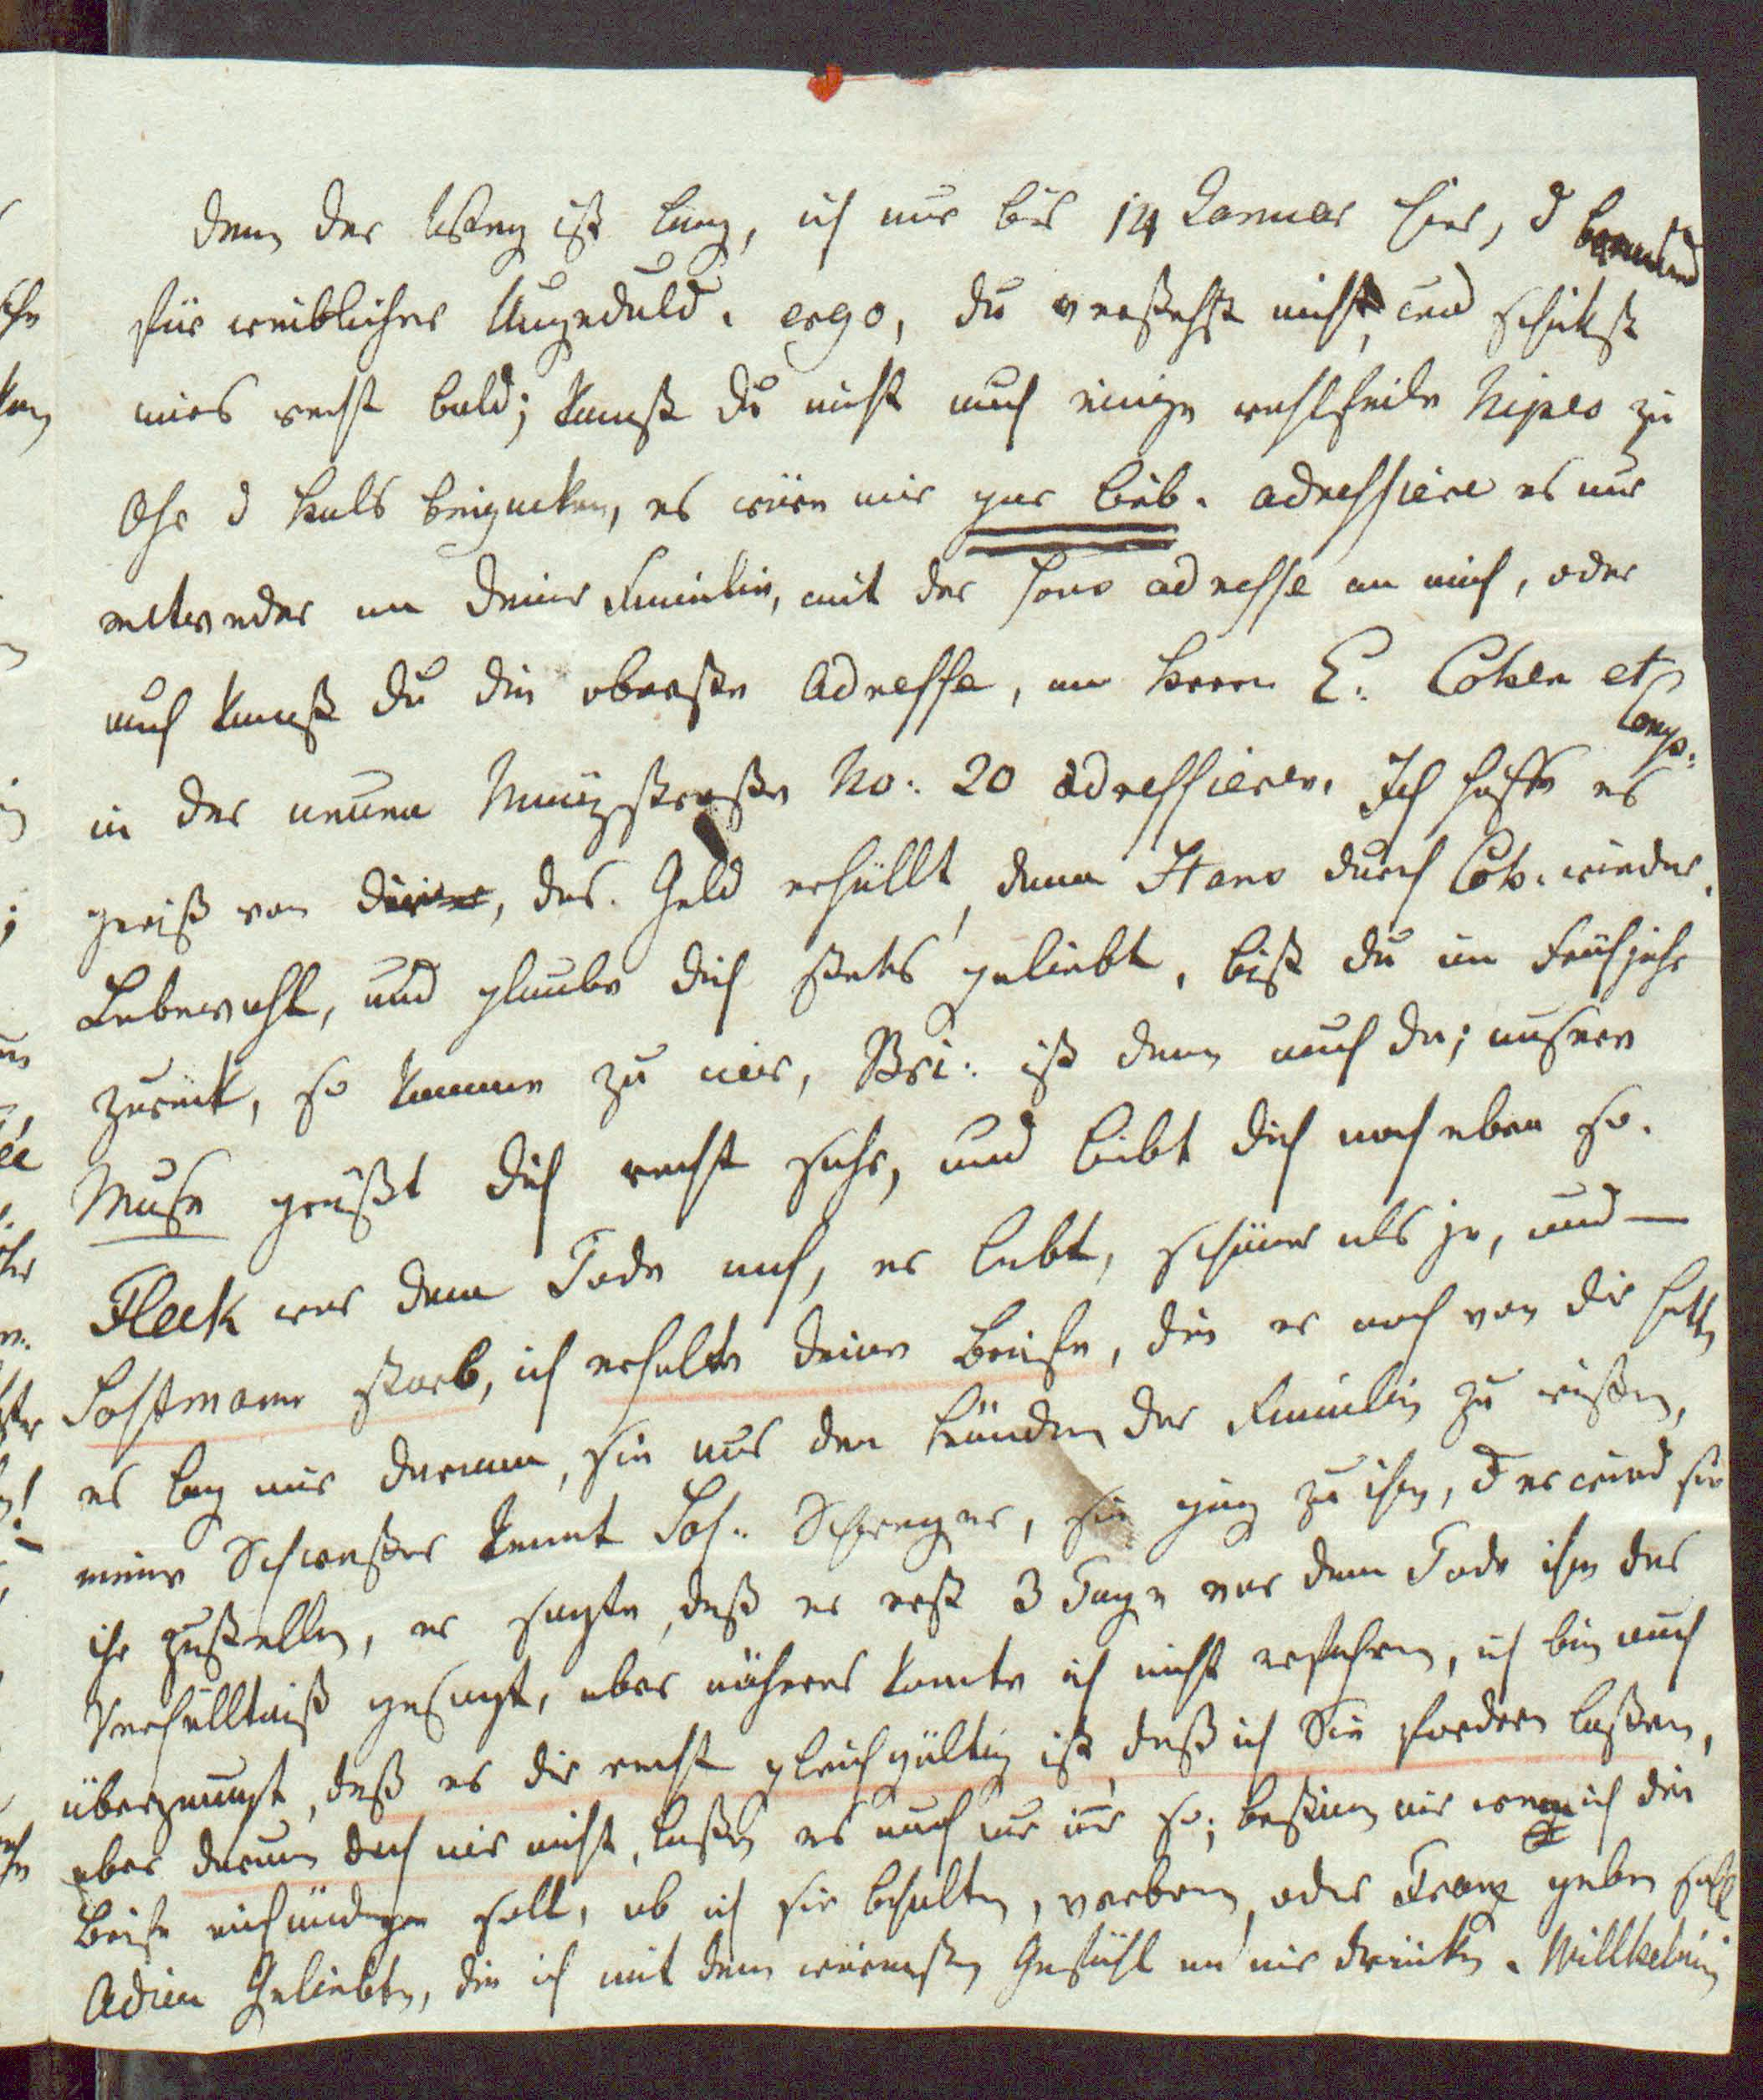 denn der Weg ist lang, ich nur bis 14 Januar hier, d brennend
für weiblicher Ungeduld. ergo, du verstehst mich, und schikst
mirs recht bald; kannst du nicht auch einige wohlfeile Nipes zu
Ohr d Hals beipacken, es wäre mir gar lieb. adressiere es nur
entweder an deine Familie, mit der adresse an mich, oder
auch kannst du die oberste Adresse, an Herrn E. Cohen et
Comp.
in der neuen Münzstraße No: 20 adressieren. Ich hoffe es
gewiß von dir, das Geld erhällt, dann Hans durch Coh. wieder.
Lebewohl, und glaube dich stets geliebt, bist du im Frühjahr
zurück, so komme zu mir, Bri: ist dann auch da; unsere
Muse grüßt dich recht sehr, und liebt dich noch eben so.
Fleck war dem Tode nah, er lebt, schöner als je, und —
Sostmann starb, ich erhalte deine Briefe, die er noch von dir hatte
es lag mir daran, sie aus den Händen der Familie zu wißen,
meine Schwester kennt Sos: Schwager, sie ging zu ihm, d er wird sie
ihr zustellen, er sagte, daß er erst 3 Tage vor dem Tode ihm das
Verhälltniß gesagt, aber näheres konnte ich nicht erfahren, ich bin auch
überzeugt, daß es dir recht gleichgültig ist, daß ich Sie fordern laßen,
aber darum doch mir nicht, laßen es auch nur so; bestimm mir wem ich die
Briefe einhändigen soll, ob ich sie behalten, verbrenn, oder Franz geben soll
Adieu Geliebte, die ich mit dem wärmsten Gefühl an mir drücke. Willhelmin